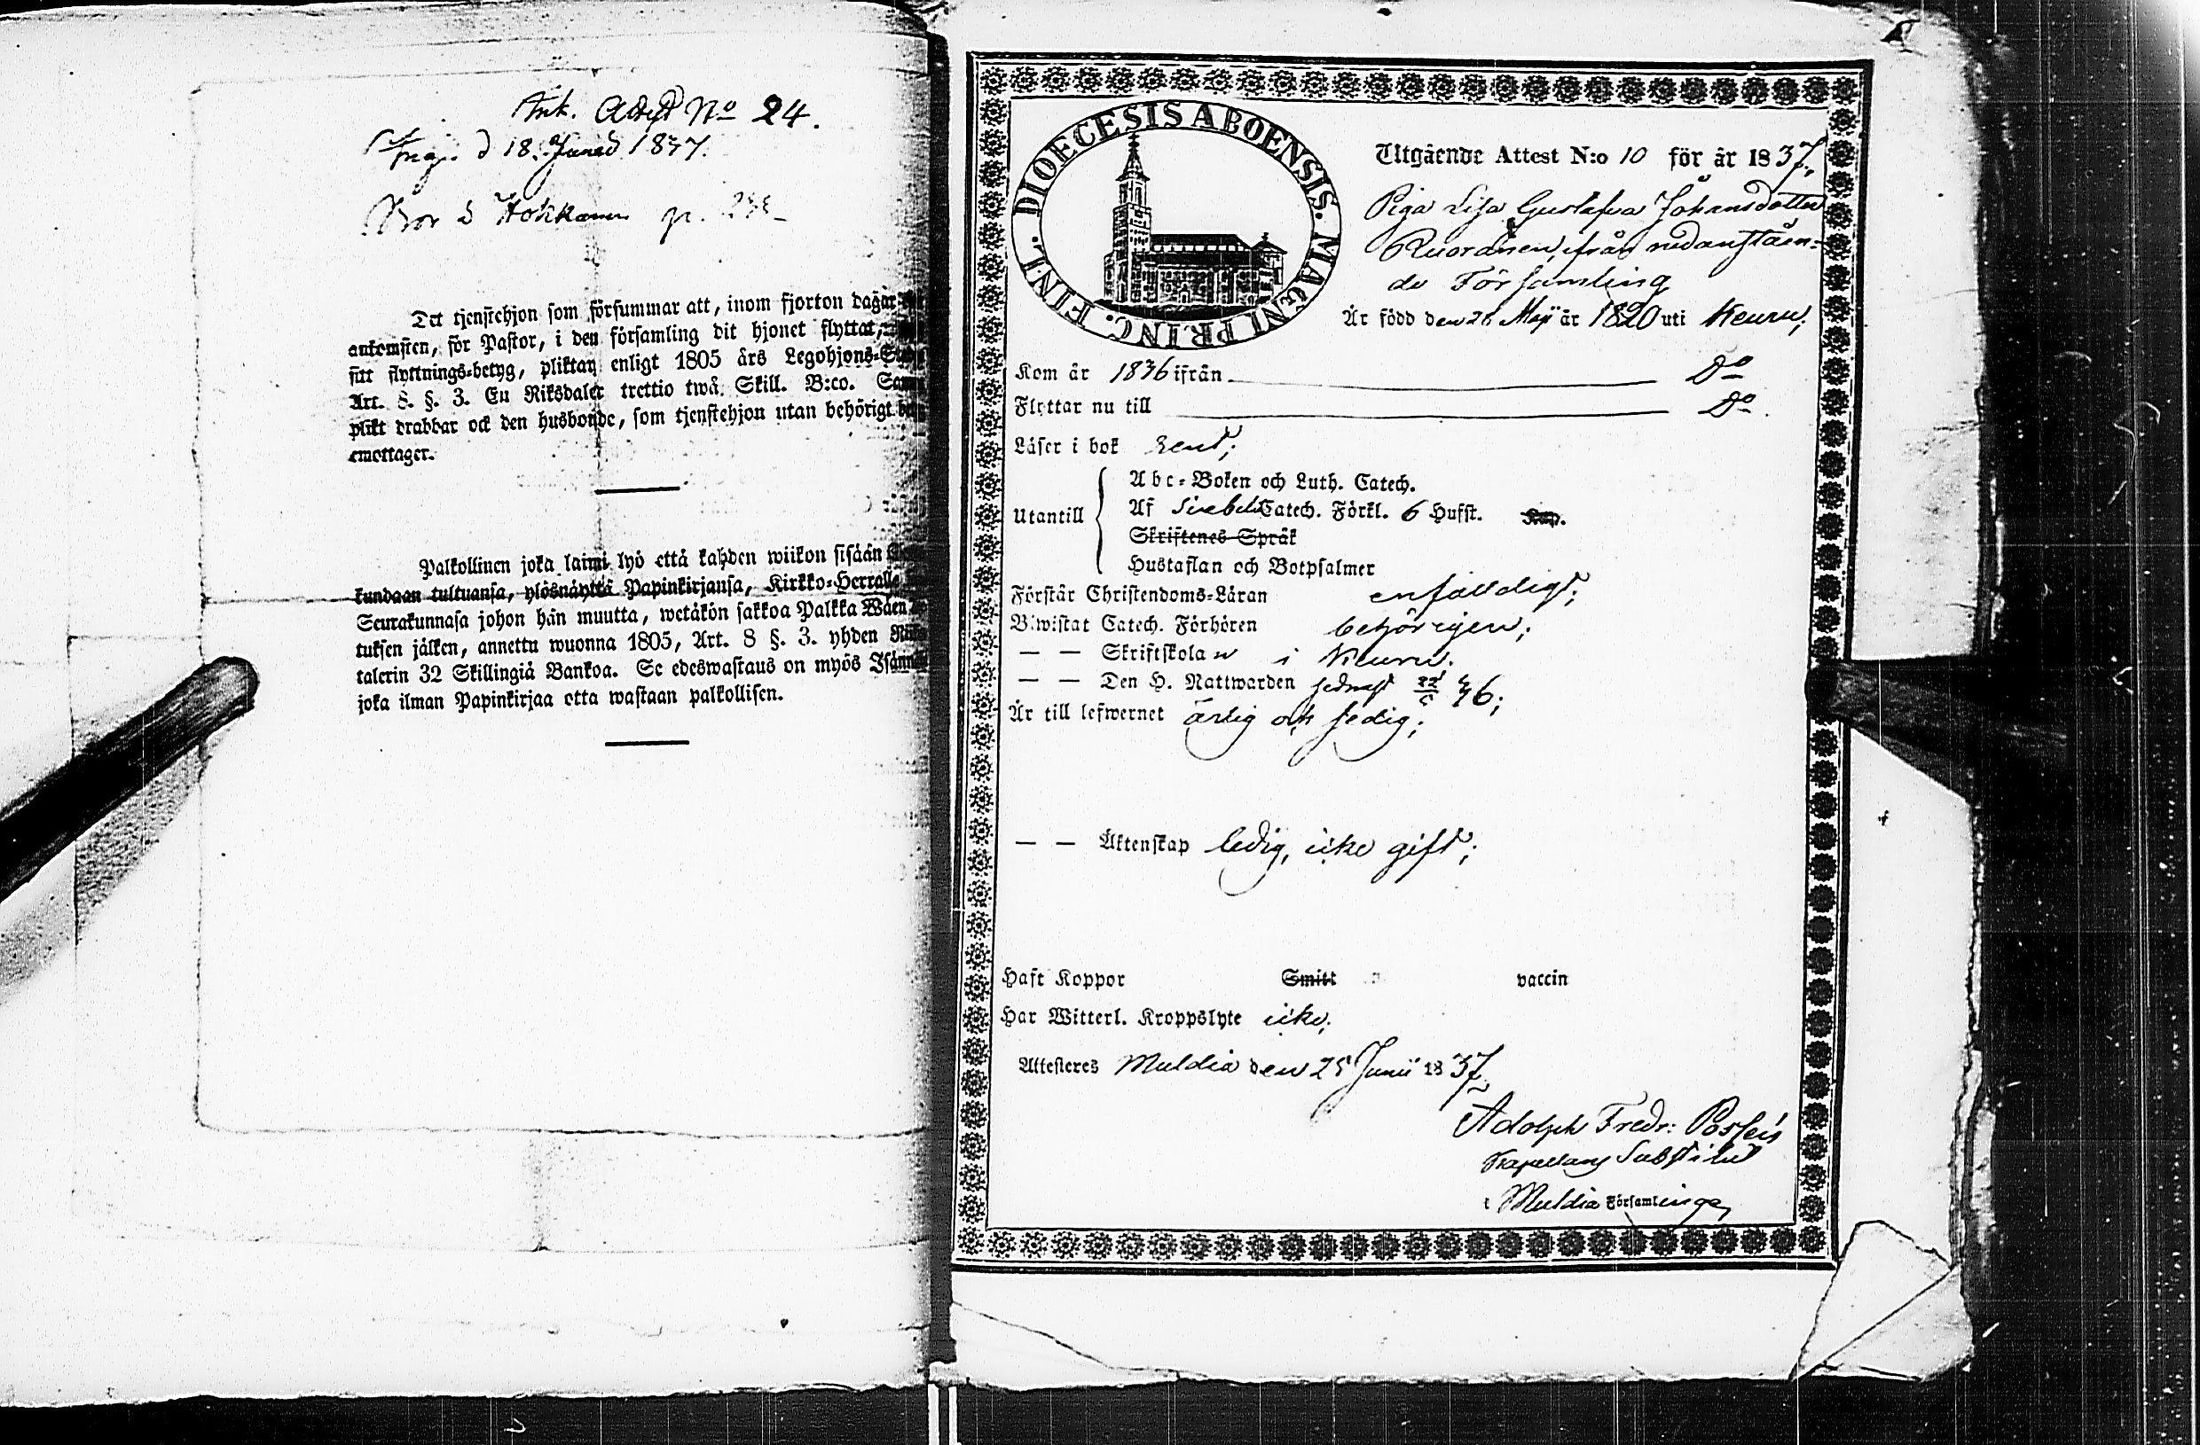 Ank. Attest No 24.
d 18 1837.
Bor å Hokkanen
Det tjenstehjon som försummar att, inom fjorton dagar
ankomsten, för Pastor, i den församling dit hjonet flyttat,
sitt flyttnings-betyg, pliktar enligt 1805 års Legohjons-
Art. 8. §. 3. En Riksdaler trettio twå Skill. B:co.
plikt drabbar ock den husbonde, som tjenstehjon utan behörigt
emottager.
Palkollinen joka laimi lyö että kahden wiikon sisään
kundaan tultuansa, ylösnäyttä Papinkirjansa, Kirkko-Herralle
Seurakunnasa johon hän muutta, wetäkön sakkoa Palkka Wäen
tuksen jälken, annettu wuonna 1805, Art. 8 §. 3. yhden
talerin 32 Skillingiä Bankoa. Se edeswastaus on myös
joka ilman Papinkirjaa otta wastaan palkollisen.
DIOECESIS ABOENSIS. MAGNI PRINC. FINL.
Utgående Attest N:o 10 för år 1837,
Piga Lisa Gustafva Johansdotter
ifrån nedanståen-
de Församling
Är född den 26 Maji år 1820 uti Keuru;
Kom år 1836 ifrån Do
Flyttar nu till Do.
Läser i bok rent;
Utantill
Abc-Boken och Luth. Catech.
Af Svebelii Catech. Förkl. 6 Hufst. Kap.
Skriftenes Språk
Hustaflan och Botpsalmer
Förstår Christendoms-Läran enfaldigt;
Biwistat Catech. Förhören behörigen;
— — Skriftskolan i Keuru.
— — Den H. Nattwarden sednast
Är till lefwernet ärlig och sedig;
— — Äktenskap ledig, icke gift;
Haft Koppor Smitt vaccin
Har Witterl. Kroppslyte icke;
Attesteres Muldia den 25 Junii 1837.
Adolph Fredr:
Kapellans Substitut
i Muldia Församlinga